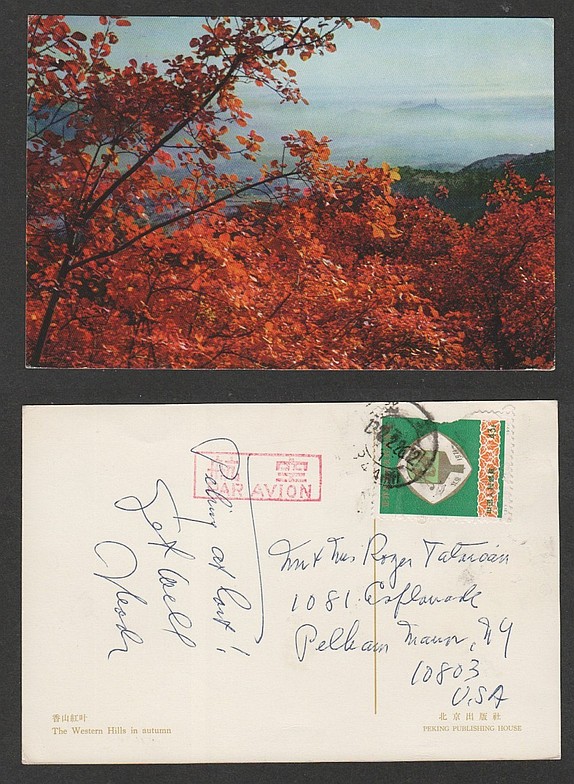 航空
PAR AVION
Peking at last!
Get Well
Mr & Mrs Roger Tatarian
1081 Esplanade
Pelham Manor, NY
10803
USA
香山紅叶
The Western Hills in autumn
北京出版社
PEKING PUBLISHING HOUSE